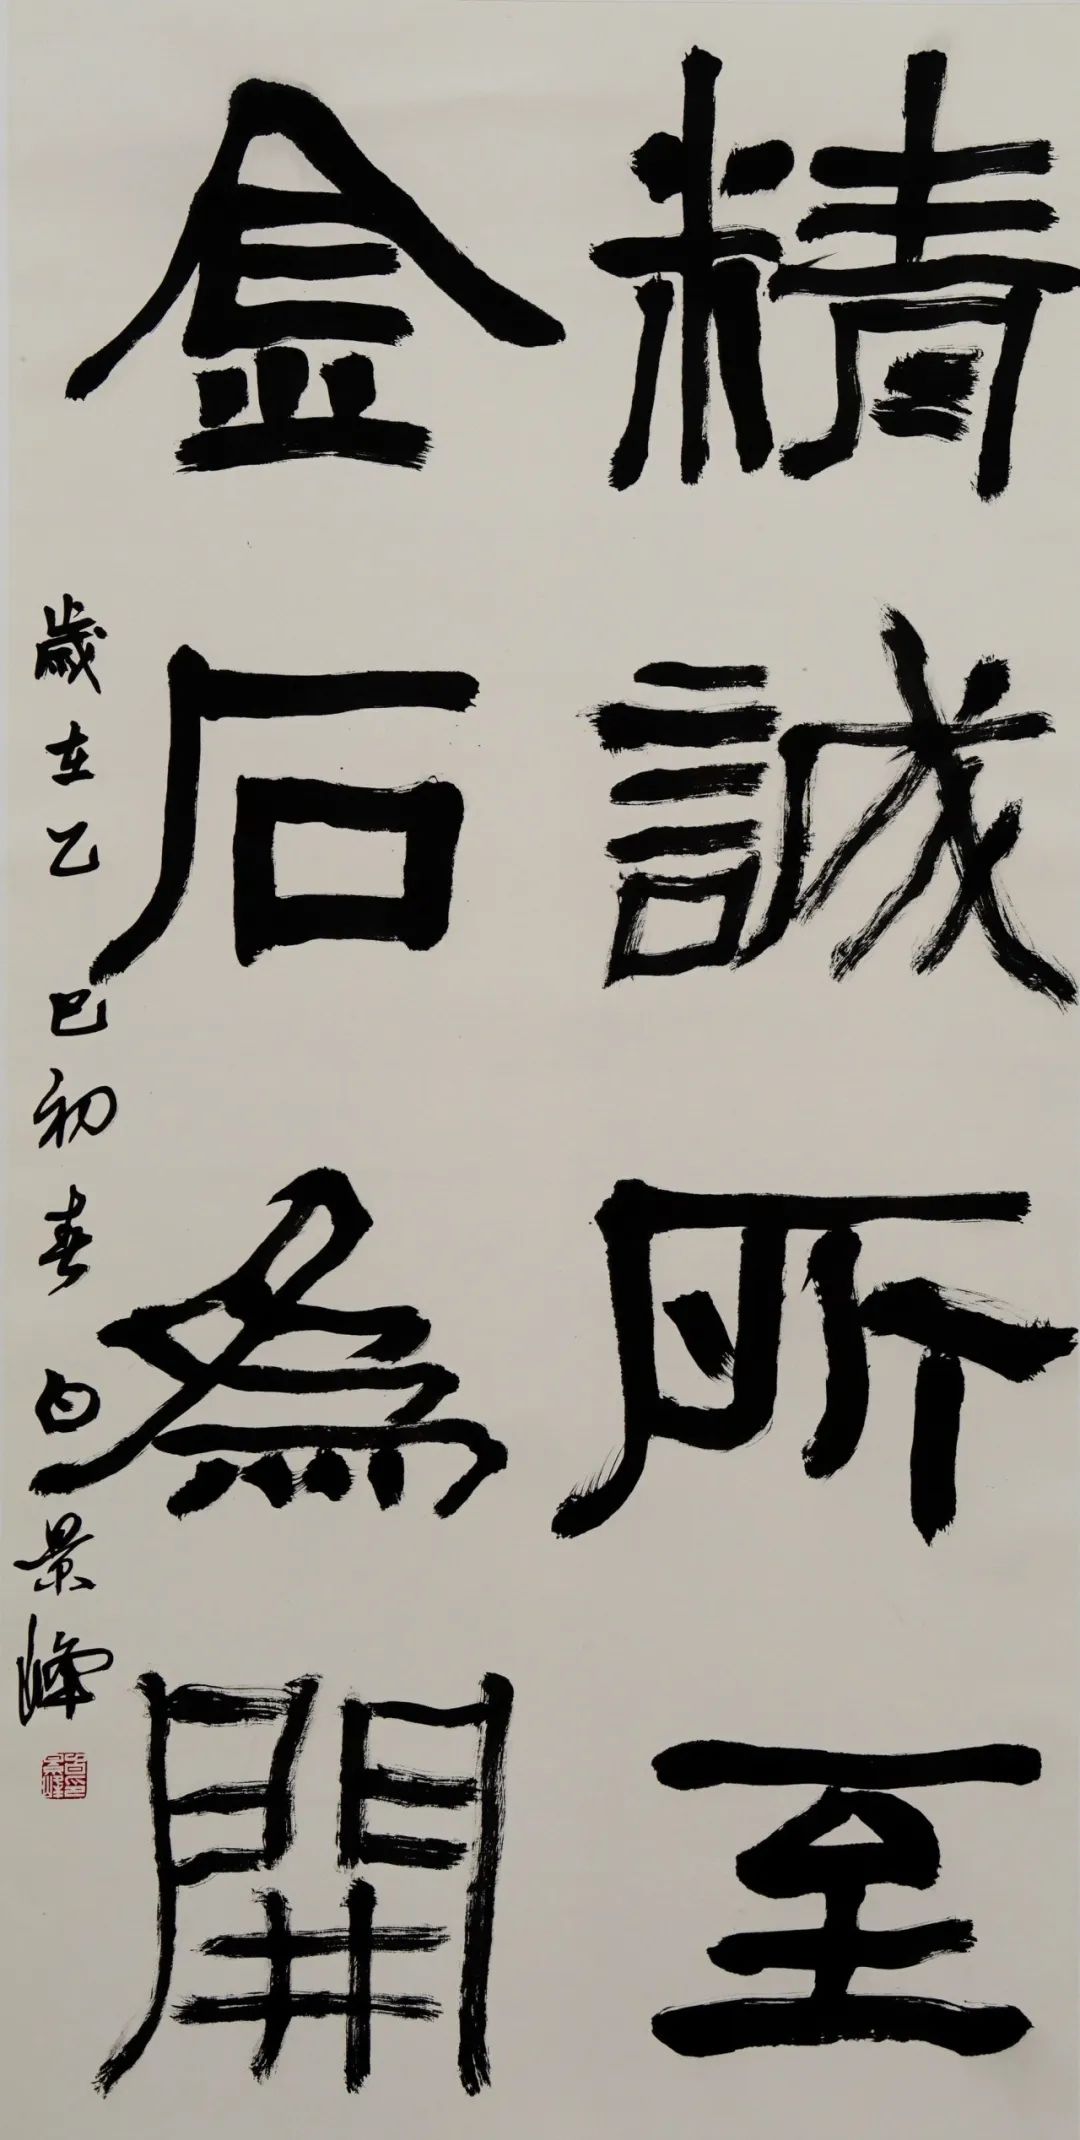 精誠所至
金石為開
歲在乙巳初春白景峰